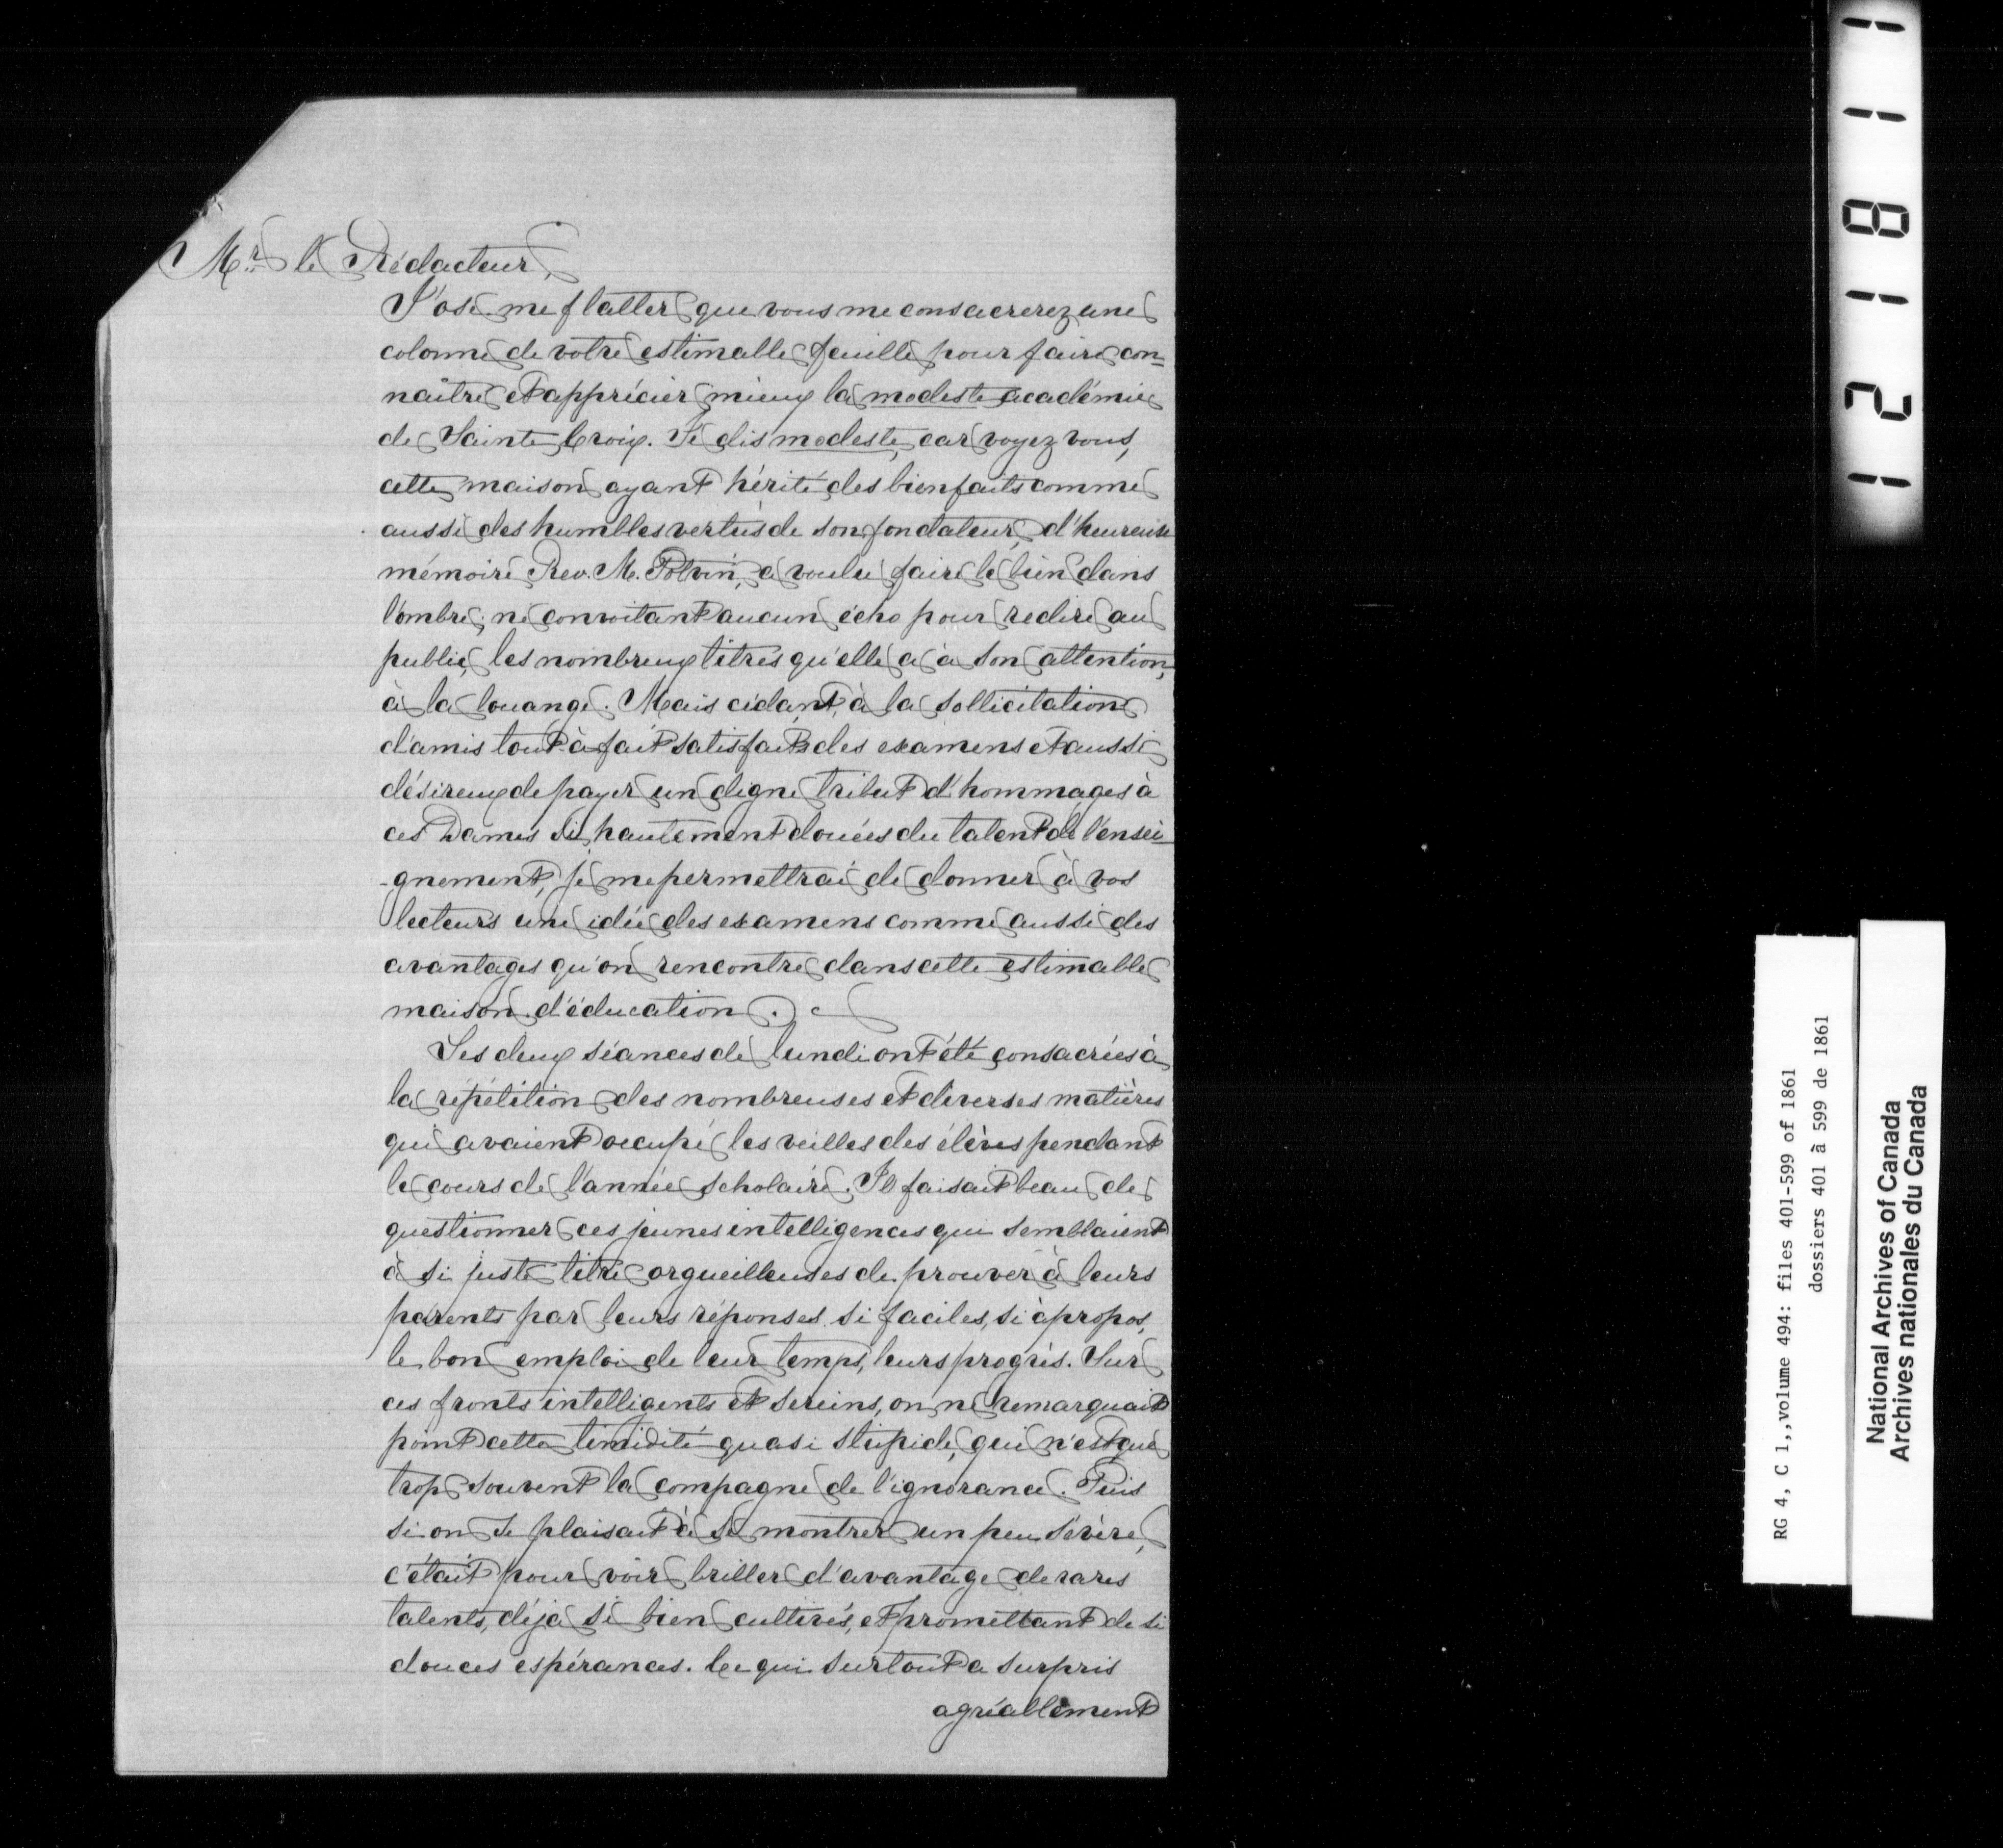 Mr. le Rédacteur,
J'ose me flatter que vous me consacrerez une
colonne de votre estimable feuille pour faire con=
naître et apprécier mieux la modeste académie
de Sainte Croix. Je dis modeste, car voyez vous,
cette maison ayant hérité des bienfaits comme
aussi des humbles vertus de son fondateur, d'heureuse
mémoire Rev. M. Potvin, a voulu faire le bien dans
l'ombre; ne convoitant aucun écho pour redire au
public, les nombreux titres qu'elle a à son attention,
à la louange. Mais cédant, à la sollicitation
d'amis tout-à-fait satisfaits des examens et aussi
désireux de payer un digne tribut d'hommages à
ces Dames si hautement douées du talent de l'ensei
-gnement, je me permettrai de donner à vos
lecteurs une idée des examens comme aussi des
avantages qu'on rencontre dans cette estimable
maison d'éducation.
Les deux séances de lundi ont été consacrées à
la répétition des nombreuses et diverses matières
qui avaient occupé les veilles des élèves pendant
le cours de l'année scholaire. Il faisait beau de
questionner ces jeunes intelligences qui semblaient
à si juste titre orgueilleuses de prouver à leurs
parents par leurs réponses si faciles, si àpropos,
le bon emploi de leur temps, leurs progrès. Sur
ces fronts intelligents et sereins, on ne remarquait
point cette timidité quasi stupide, qui n'est que
trop souvent la compagne de l'ignorance. Puis
si on se plaisait à se montrer un peu sévère,
c'était pour voir briller d'avantage de rares
talents, déjà si bien cultivés, et promettant de si
douces espérances. Ce qui surtout a surpris
agréablement
121811
RG 4, C 1,,volume 494: files 401-599 of 1861
dossiers 401 à 599 de 1861
National Archives of Canada
Archives nationales du Canada